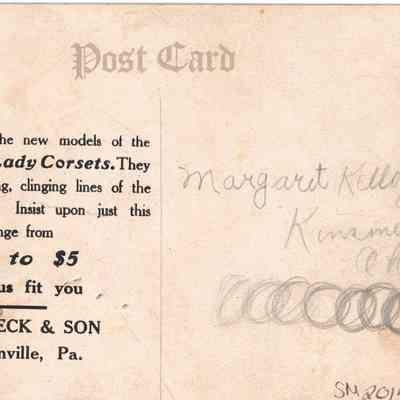 Post Card
he new models of the
Lady Corsets. They
g, clinging lines of the
Insist upon just this
nge from
to $5
us fit you
ECK & SON
nville, Pa.
Margaret Kello
Kinsm
O
SM201